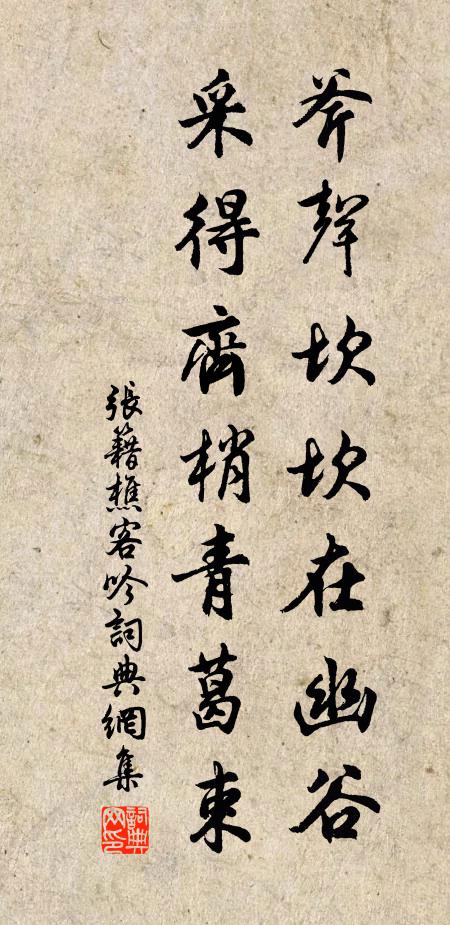 斧聲坎坎在幽谷
采得齊梢青葛束
張籍樵客吟詞典網集
詞典網印